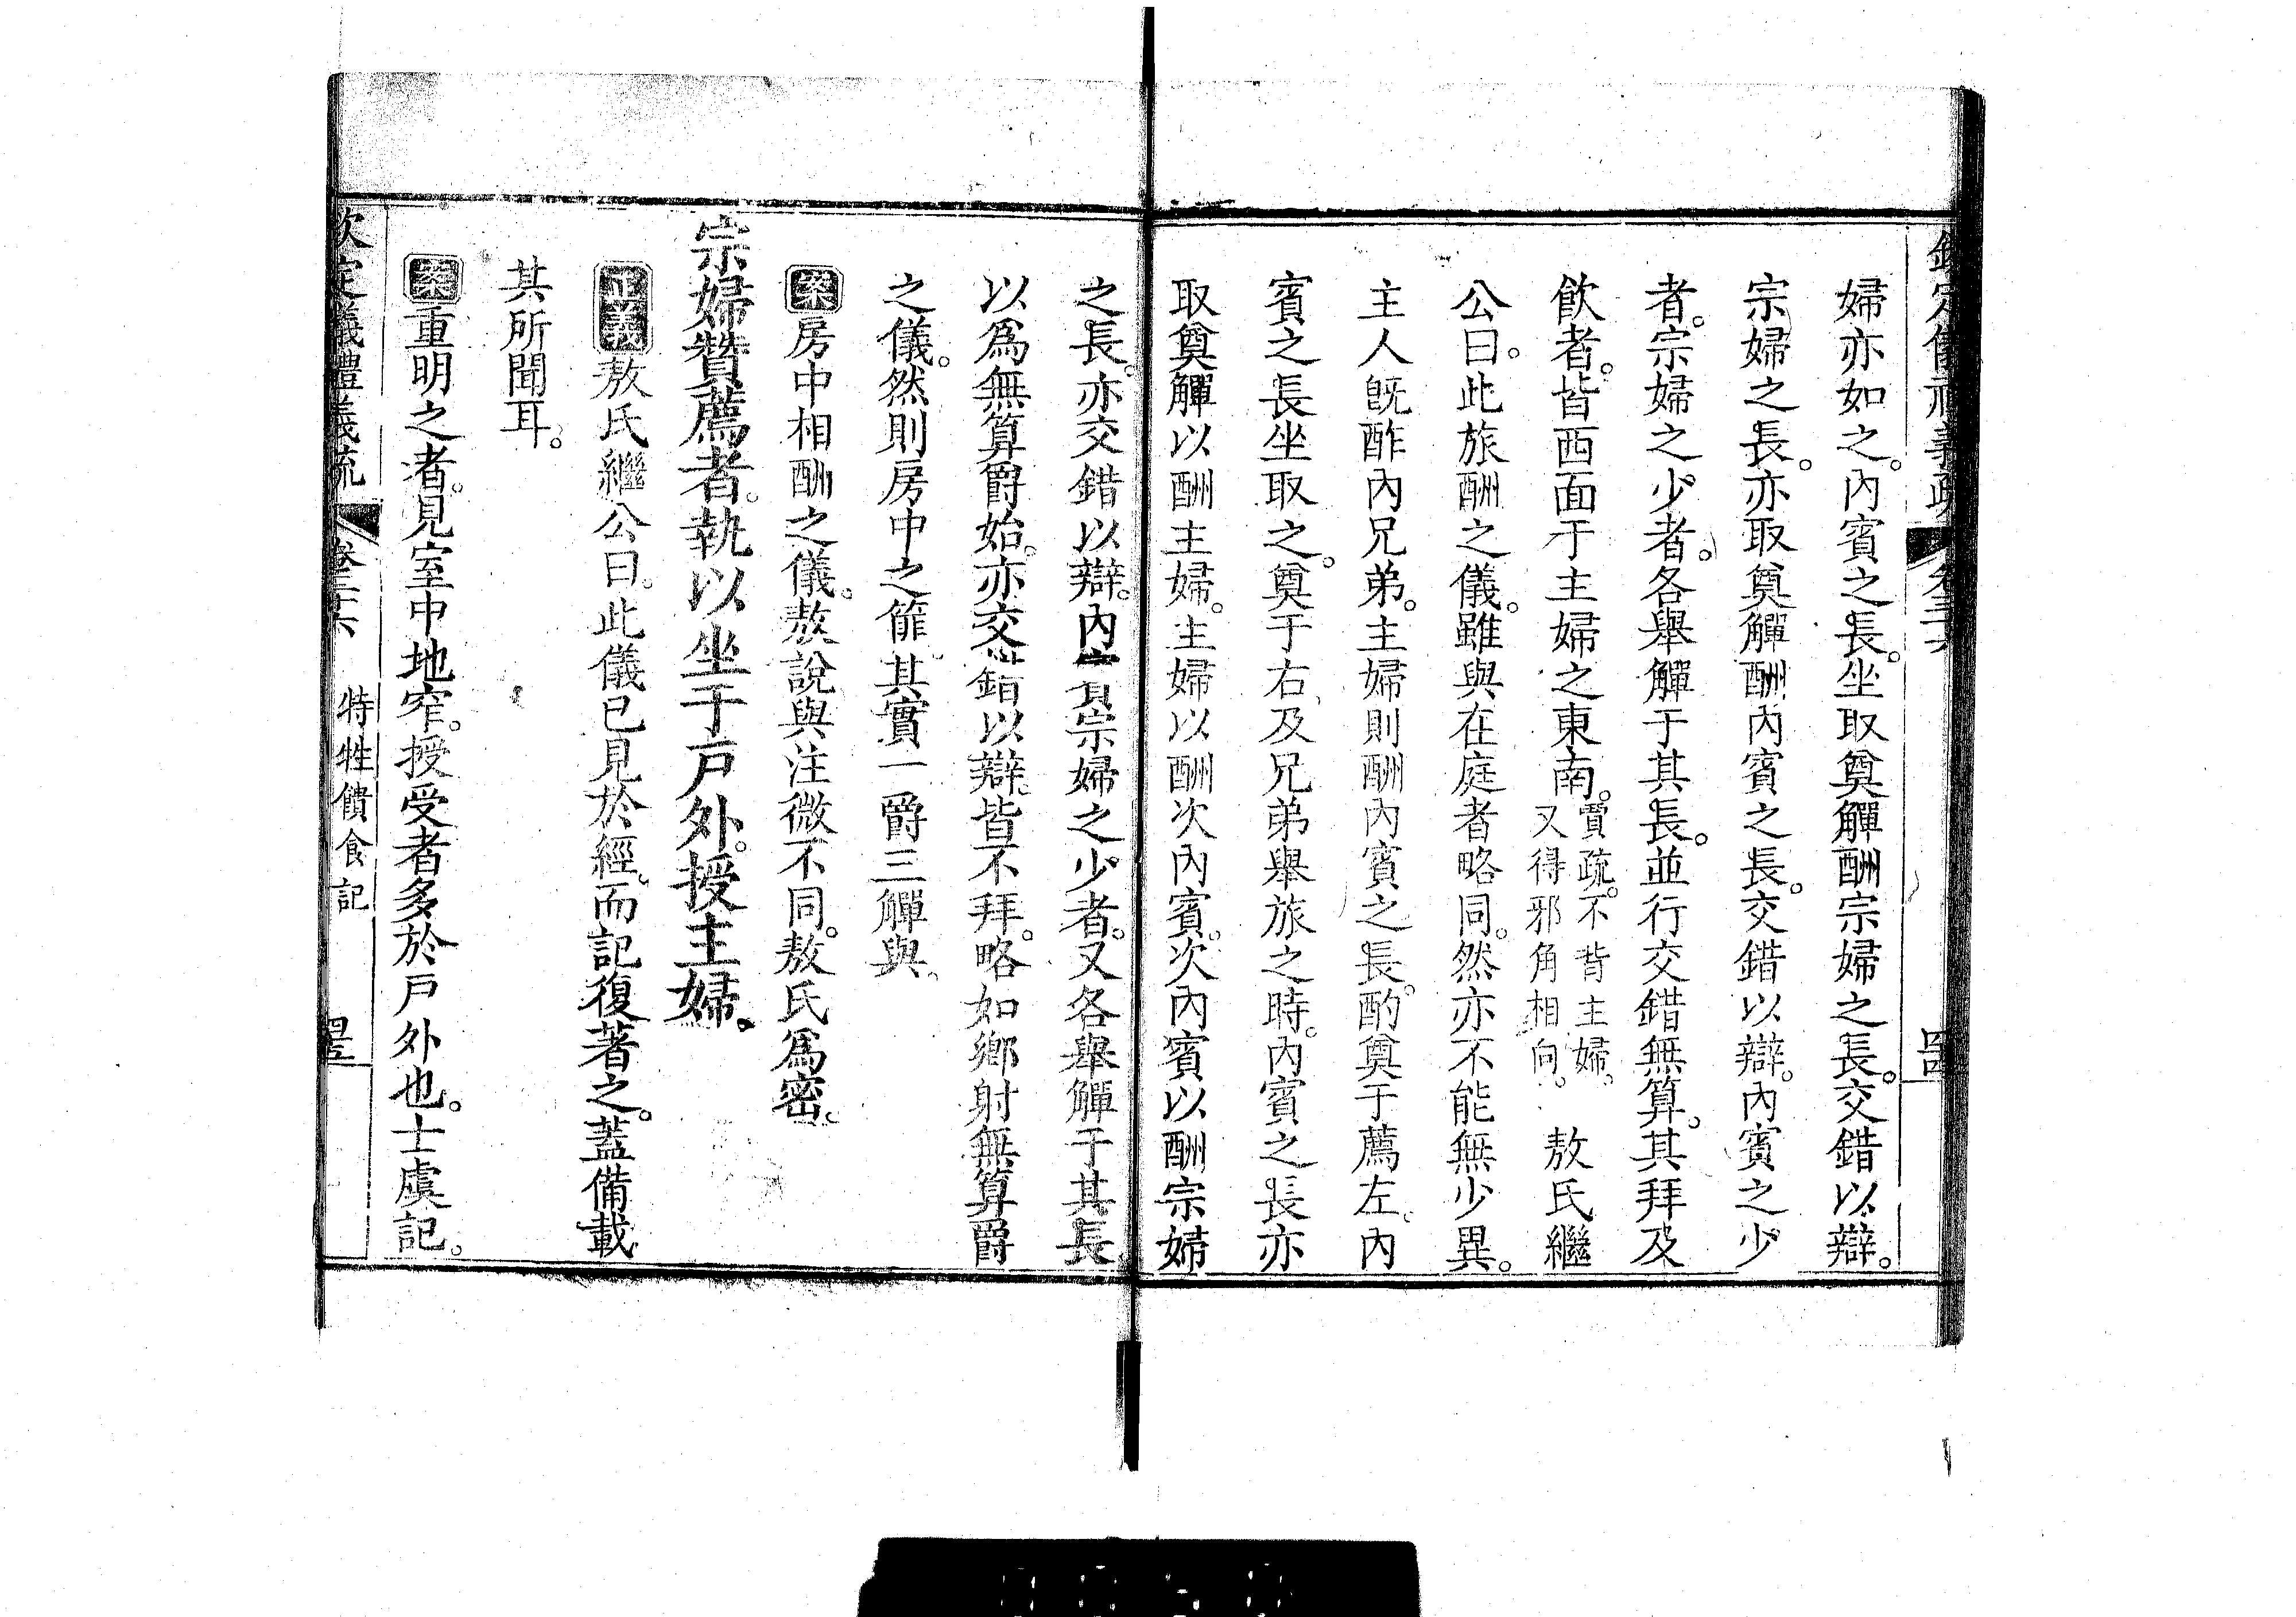 欽定儀禮義疏 卷三十六 四四
婦亦如之。內賓之長。坐取奠觶酬宗婦之長。交錯以辯。
宗婦之長。亦取奠觶酬內賓之長。交錯以辯。內賓之少
者。宗婦之少者。各舉觶于其長。並行交錯無算。其拜及
飲者。皆西面于主婦之東南。賈疏。不背主婦。又得邪角相向。 敖氏繼
公曰。此旅酬之儀。雖與在庭者略同。然亦不能無少異。
主人旣酢內兄弟。主婦則酬內賓之長。酌奠于薦左。內
賓之長坐取之。奠于右。及兄弟舉旅之時。內賓之長亦
取奠觶以酬主婦。主婦以酬次內賓。次內賓以酬宗婦
之長。亦交錯以辯。內賓宗婦之少者。又各舉觶于其長
以爲無算爵始。亦交錯以辯。皆不拜。略如鄉射無算爵
之儀。然則房中之篚。其實一爵三觶與。
案房中相酬之儀。敖說與注微不同。敖氏爲密。
宗婦贊薦者。執以坐于戶外。授主婦。
正義敖氏繼公曰。此儀已見於經。而記復著之。蓋備載
其所聞耳。
案重明之者。見室中地窄。授受者多於戶外也。士虞記。
欽定儀禮義疏 卷三十六 特牲饋食記 四五